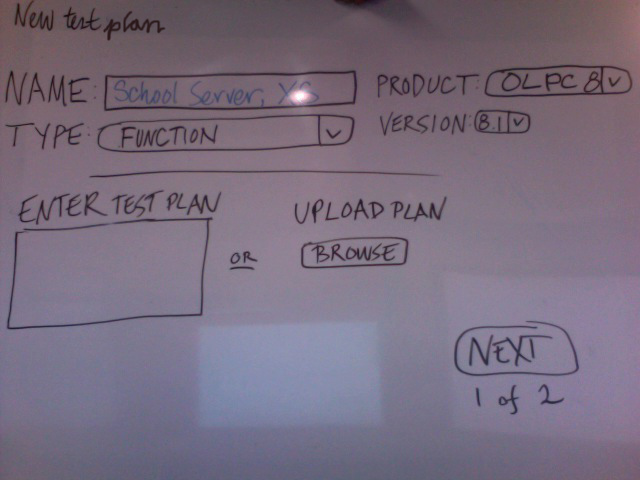 New test plan
NAME: School Server, XS PRODUCT: OLPC 8
TYPE: FUNCTION VERSION: 8.1
ENTER TEST PLAN UPLOAD PLAN
OR BROWSE
NEXT
1 of 2